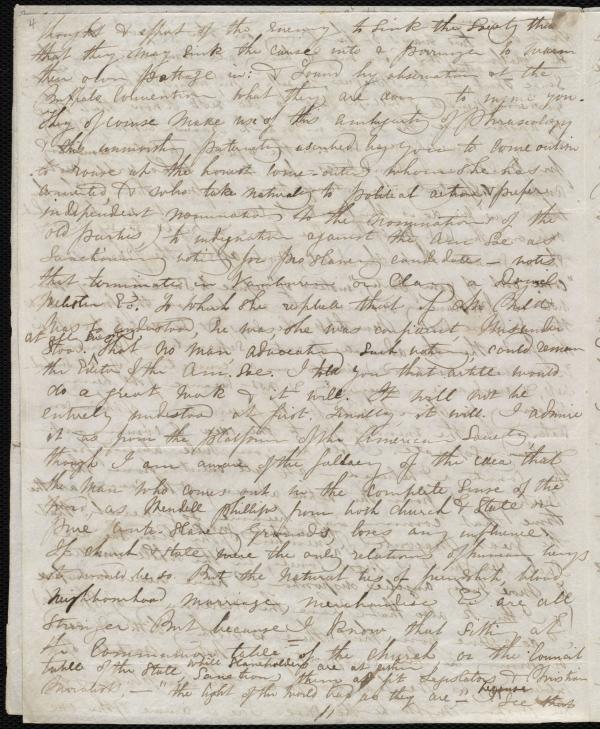 4
thought & effort of the enemy to sink the Society that
that they may sink the cause into a Porringer to warm
their own Pottage in: & I found by observation at the
Buffalo Convention what they are doing to injure you.
They of course make use of this ambiguity of Phraseology
& the censorship ascribed by you to come outism
to rouse up the honest come-outers whom she has
converted, & who take naturally to political action, (prefer
independent nominations to the nominations of the
old parties,) to indignation against the Am Soc as
sanctioning voting for pro slavery candidates — votes
that terminate in Vanburen or Clay, a Daniel
Webster &c. To which she replied that if Mr Child
was so understood, he was she was confident, misunder
at all events,
stood, that no man advocating such voting, could remain
the Editor of the Am. Soc. I told you that article would
do a great work & it will. It will not be
entirely understood at first. Finally it will. I admire
it as from the platform of the American Society
though I am aware of the fallacy of the idea that
the man who comes out in the complete sense of the
term, as Wendell Phillips from both church & State on
true Anti-Slavery Grounds loses any influence.
If church & State were the only relations of human beings
it would be so. But the natural ties of friendship, blood
neighbourhood marriage, merchandise &c are all
stronger. But because I know that sitting at
the Communion table of the church or the Council
table of the State while Slaveholders are at either
sanctions them as fit Legislators & Christian
Ministers, — "the light of the world bad as they are" — because
I see that